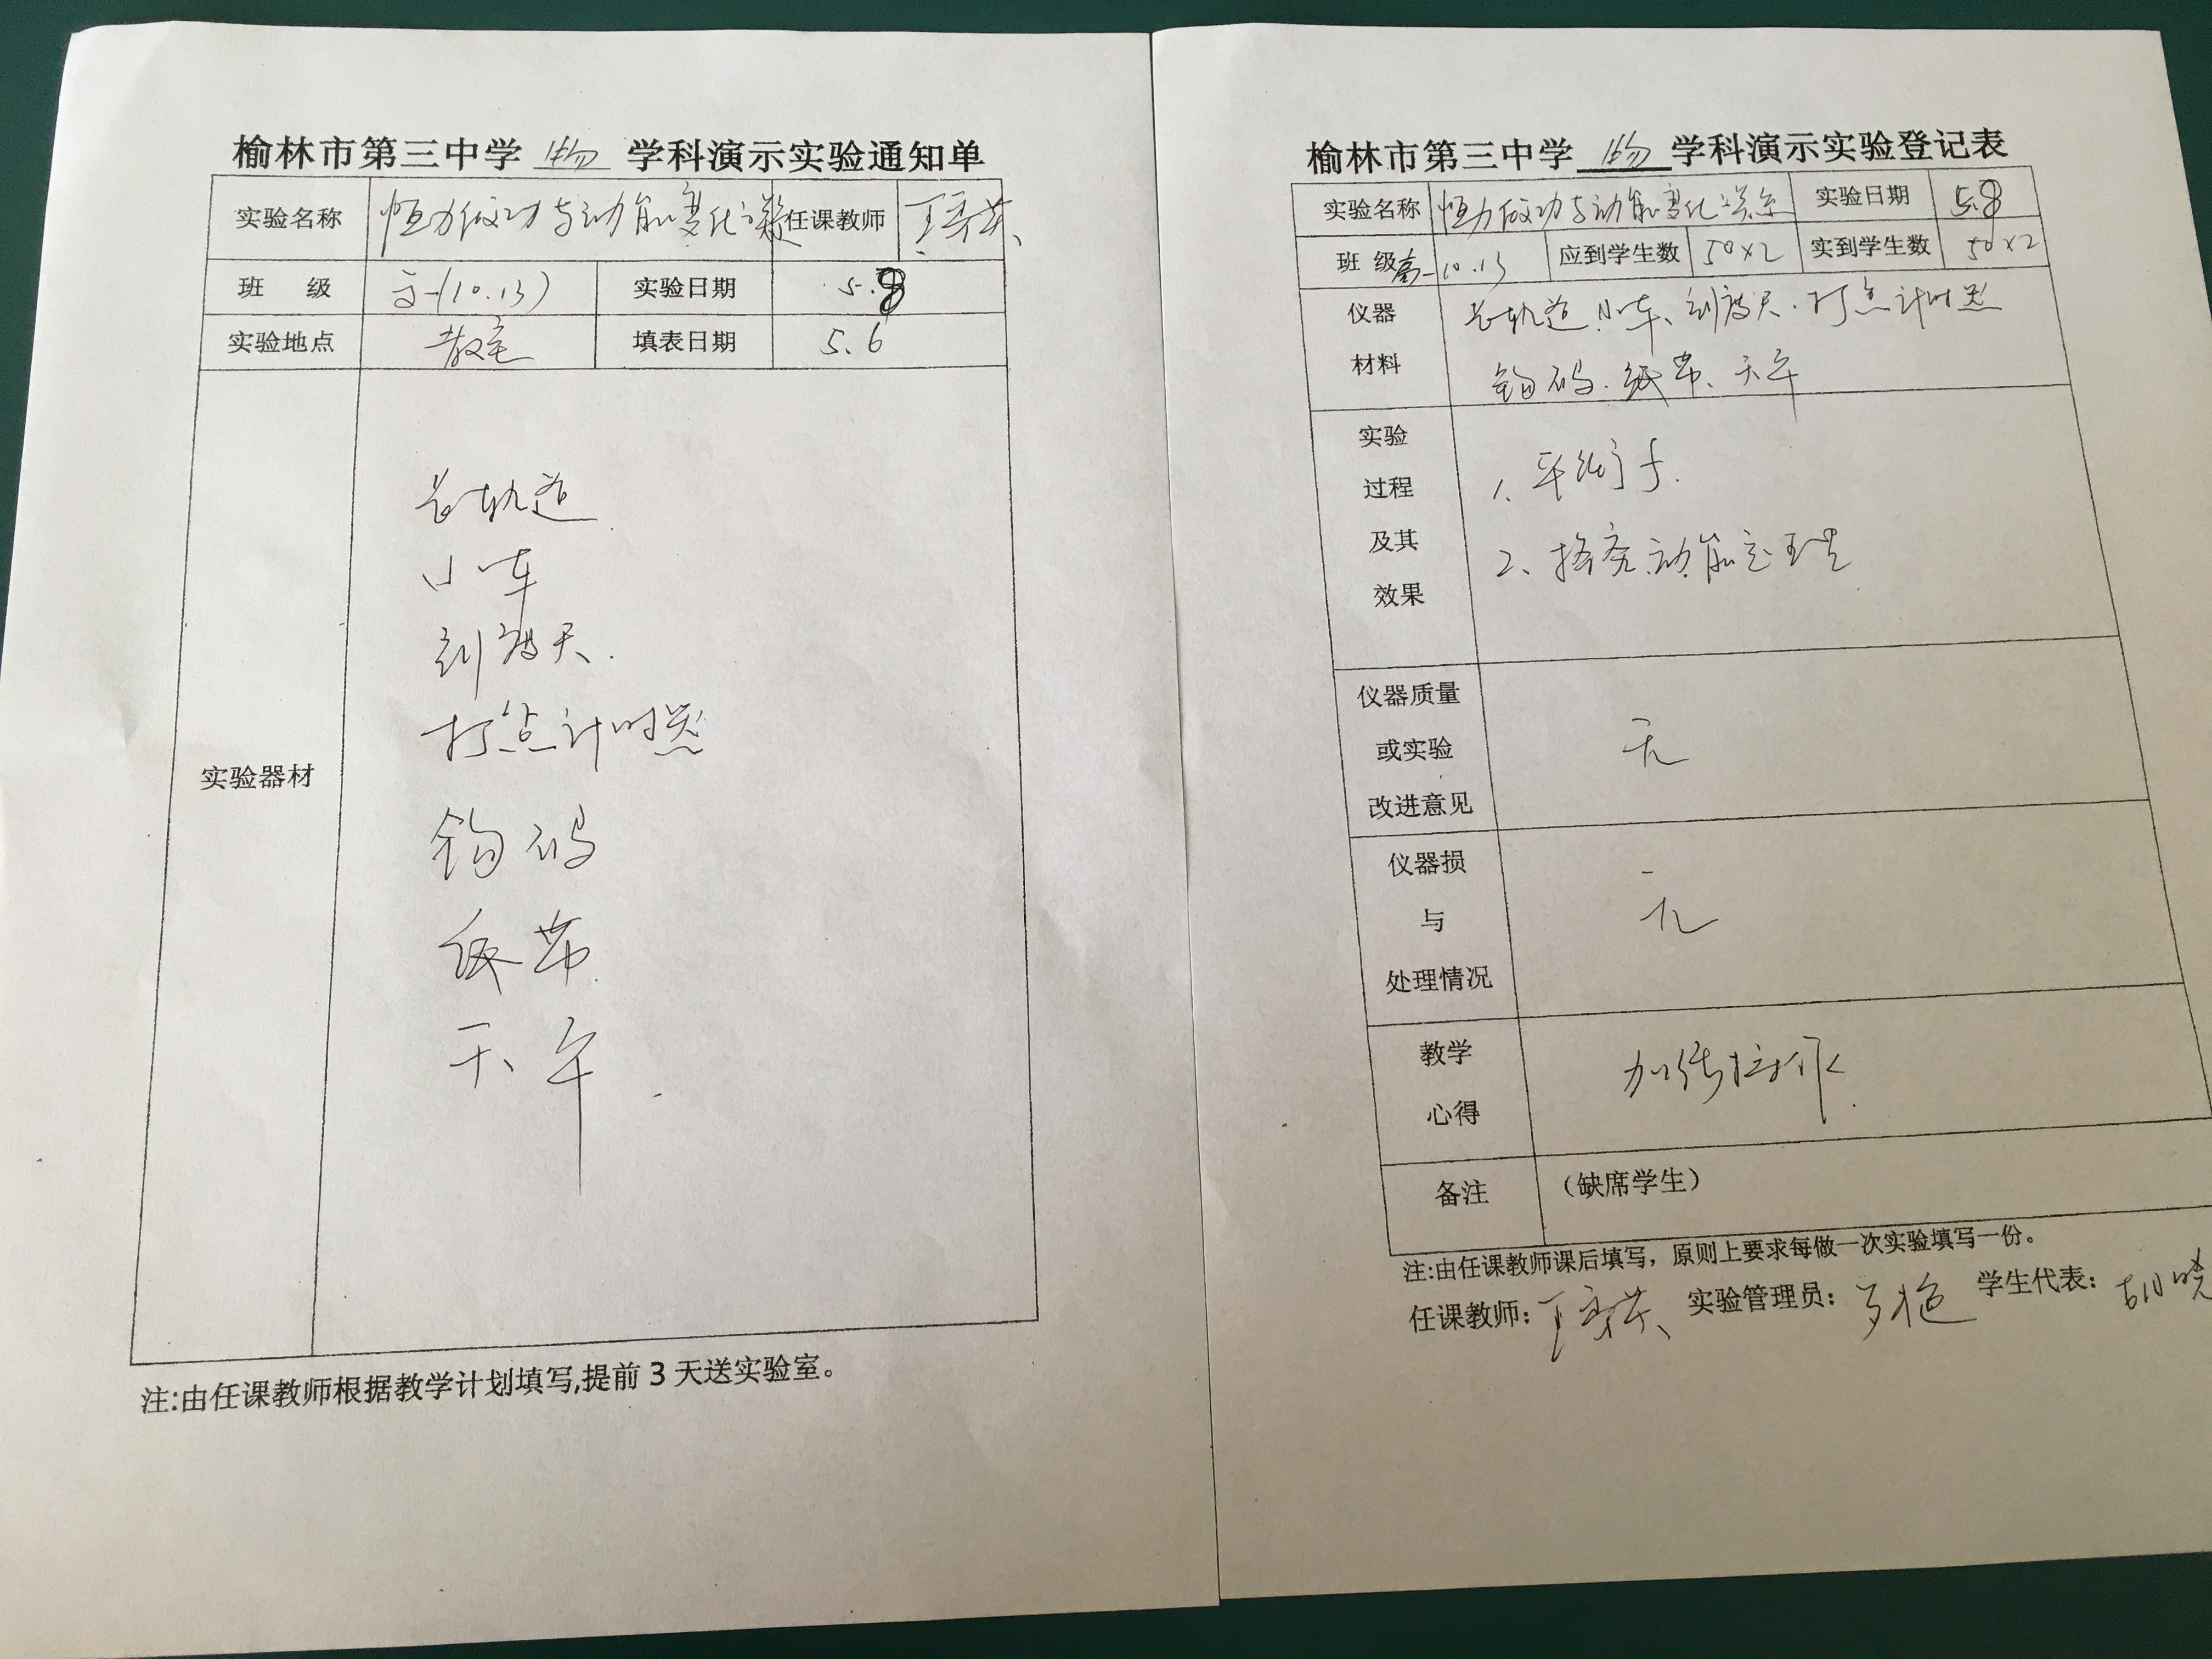 榆林市第三中学 物 学科演示实验通知单
实验名称 恒力做功与动能变化之关系 任课教师
班 级 高一(10.13) 实验日期 5.8
实验地点 教室 填表日期 5.6
实验器材
长轨道
小车
刻度尺.
打点计时器
钩码
纸带
天平
注:由任课教师根据教学计划填写,提前 3 天送实验室。
榆林市第三中学 物 学科演示实验登记表
实验名称 恒力做功与动能变化之关系 实验日期 5.8
班 级 高一10.13 应到学生数 50×2 实到学生数 50×2
仪器 材料
长轨道、小车、刻度尺、打点计时器
钩码、纸带、天平
实验 过程 及其 效果
1、平衡
2、探究动能定理
仪器质量 或实验 改进意见
无
仪器损 与 处理情况
无
教学 心得
加强操作.
备注 (缺席学生)
注:由任课教师课后填写，原则上要求每做一次实验填写一份。
任课教师: 实验管理员: 学生代表: 胡晓